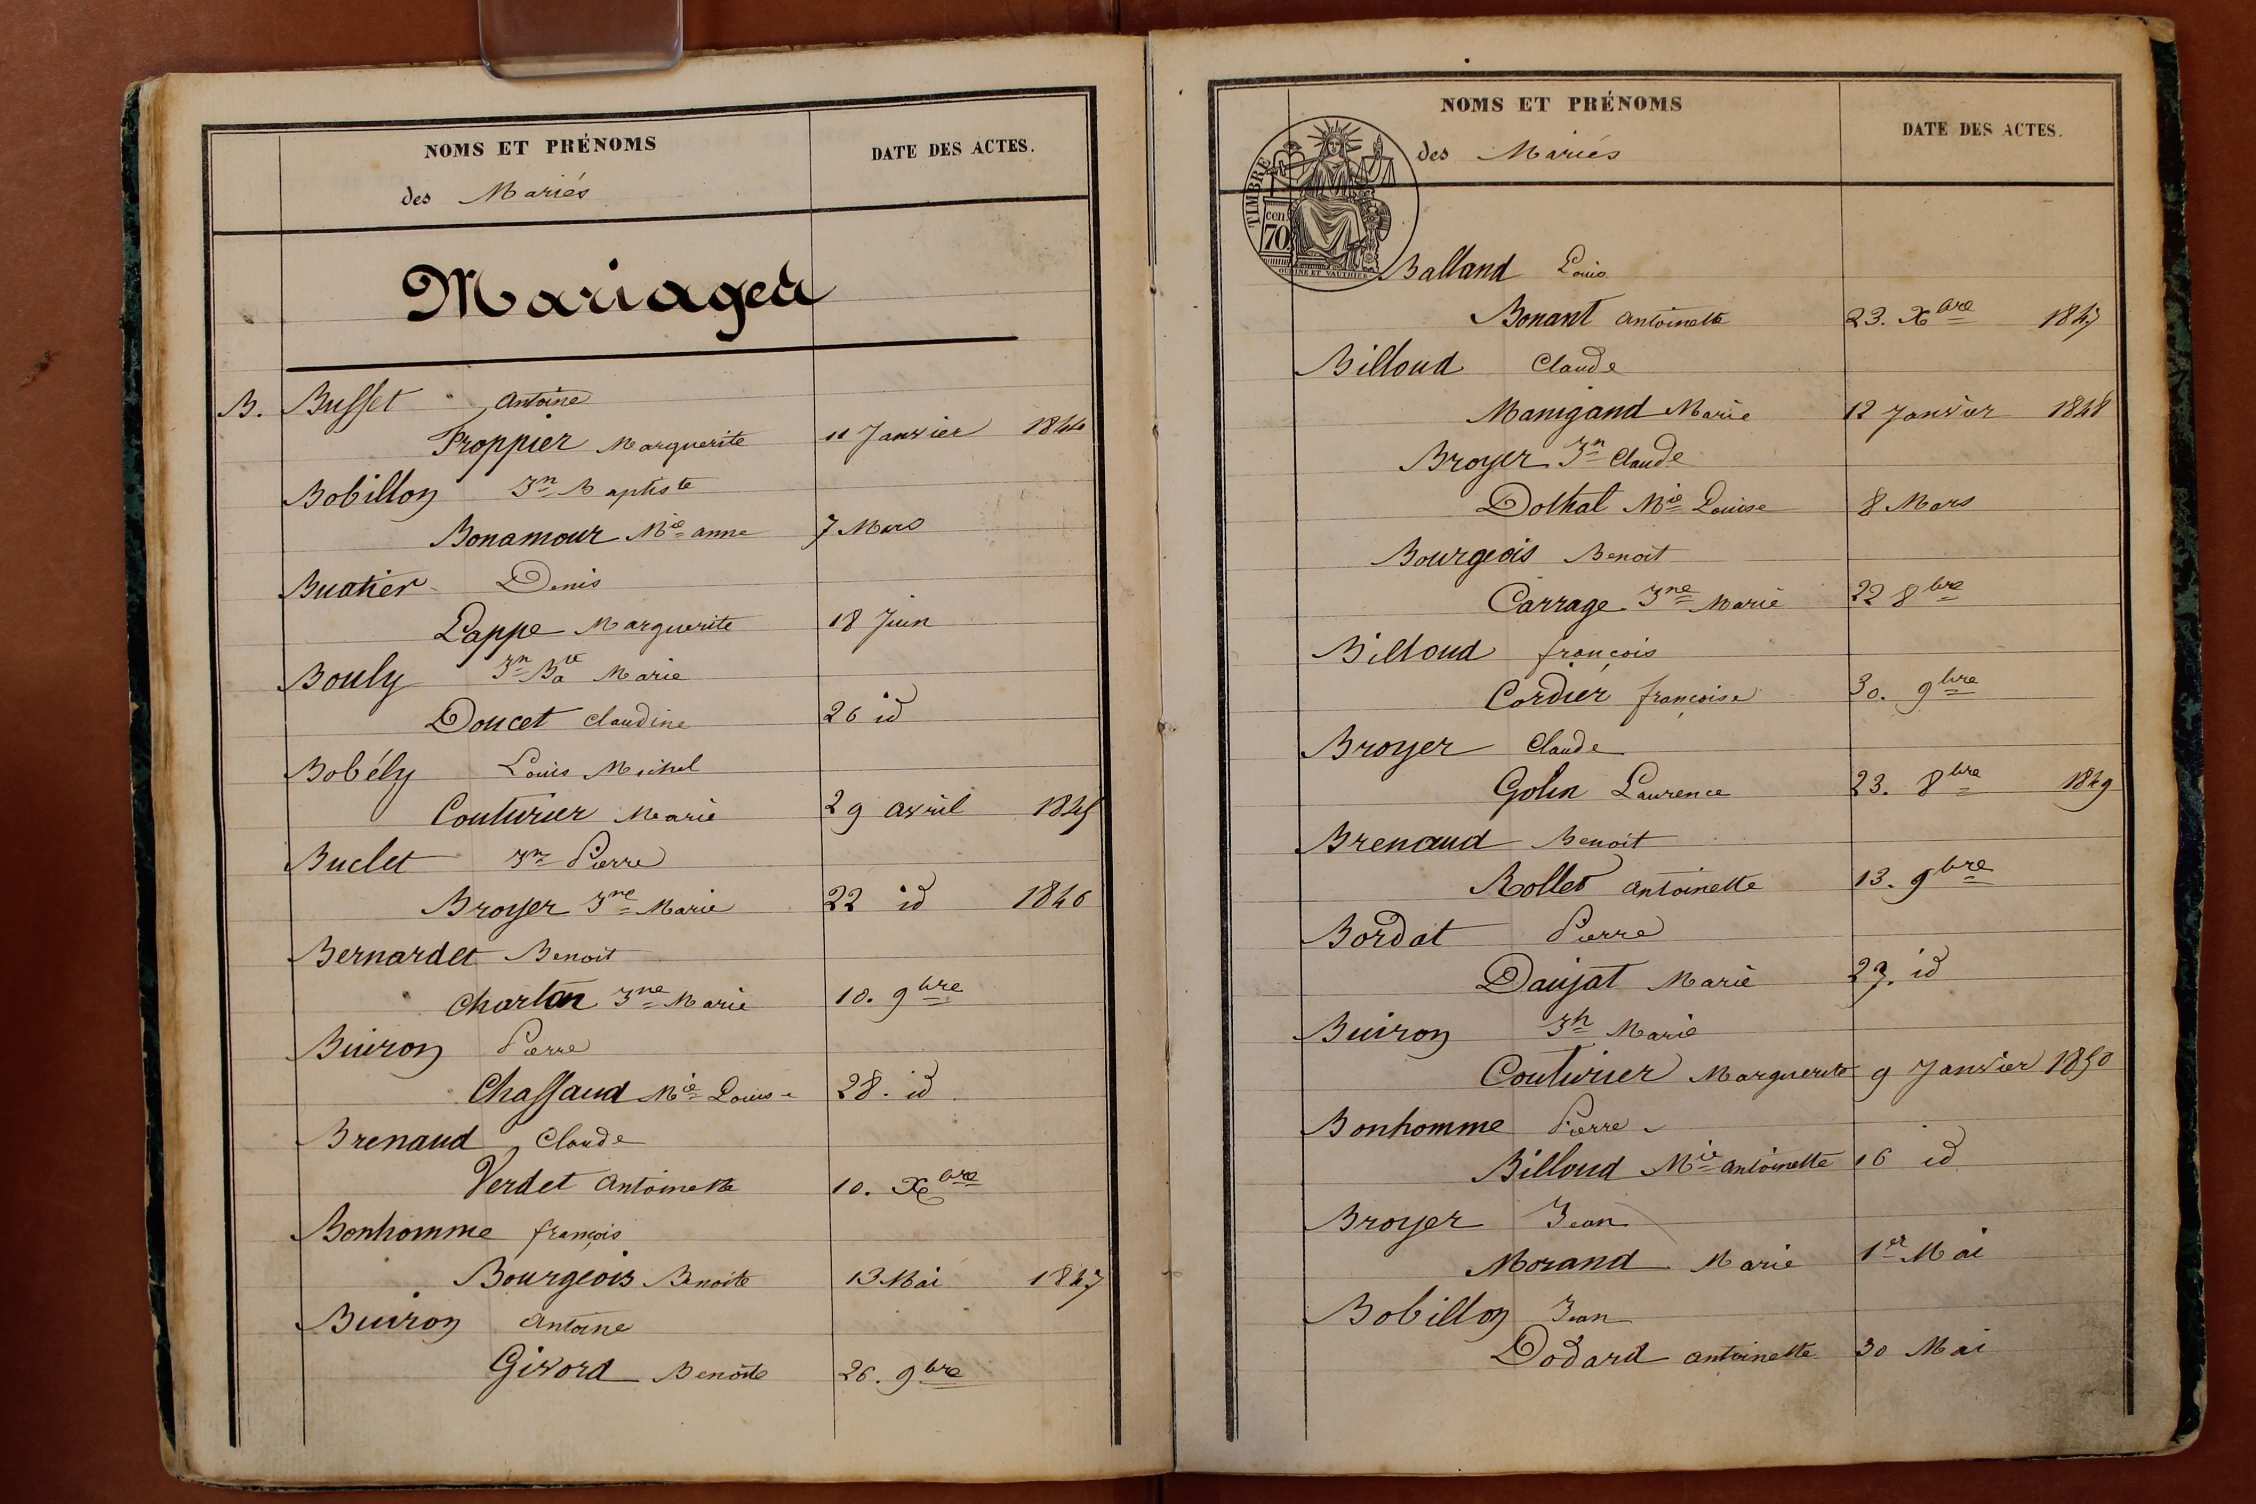 NOMS ET PRÉNOMS
DATE DES ACTES.
des Mariés
Mariages
B. Busset Antoine
Froppier Marguerite 11 Janvier 1844
Bobillon Jn Baptiste
Bonamour Mie anne 7 Mars
Buatier Denis
Lappe Marguerite 18 Juin
Bouly Jn Bte Marie
Doucet Claudine 26 id
Bobély Louis Michel
Couturier Marie 29 avril 1845
Buclet Jn Pierre
Broyer Jne Marie 22 id 1846
Bernardet Benoit
Charlon Jne Marie 10. 9bre
Buiron Pierre
Chassaud Mie Louise 28. id
Brenaud Claude
Verdet Antoinette 10. Xbre
Bonhomme françois
Bourgeois Benoite 13 Mai 1847
Buiron Antoine
Givord Benoite 26. 9bre
NOMS ET PRÉNOMS
DATE DES ACTES.
des Mariés
TIMBRE
cen
70
OUDINE ET VAUTHIER
Balland Louis
Bonant Antoinette 23. Xbre 1847
Billoud Claude
Manigand Marie 12 Janvier 1848
Broyer Jn Claude
Dothal Mie Louise 8 Mars
Bourgeois Benoit
Carrage Jne Marie 22 8bre
Billoud françois
Cordier françoise 30. 9bre
Broyer Claude
Golin Laurence 23. 8bre 1849
Brenaud Benoit
Rollet Antoinette 13. 9bre
Bordat Pierre
Daujat Marie 27. id
Buiron Jh Marie
Couturier Marguerite 9 Janvier 1850
Bonhomme Pierre
Billoud Mie antoinette 16 id
Broyer Jean
Morand Marie 1er Mai
Bobillon Jean
Dodard antoinette 30 Mai